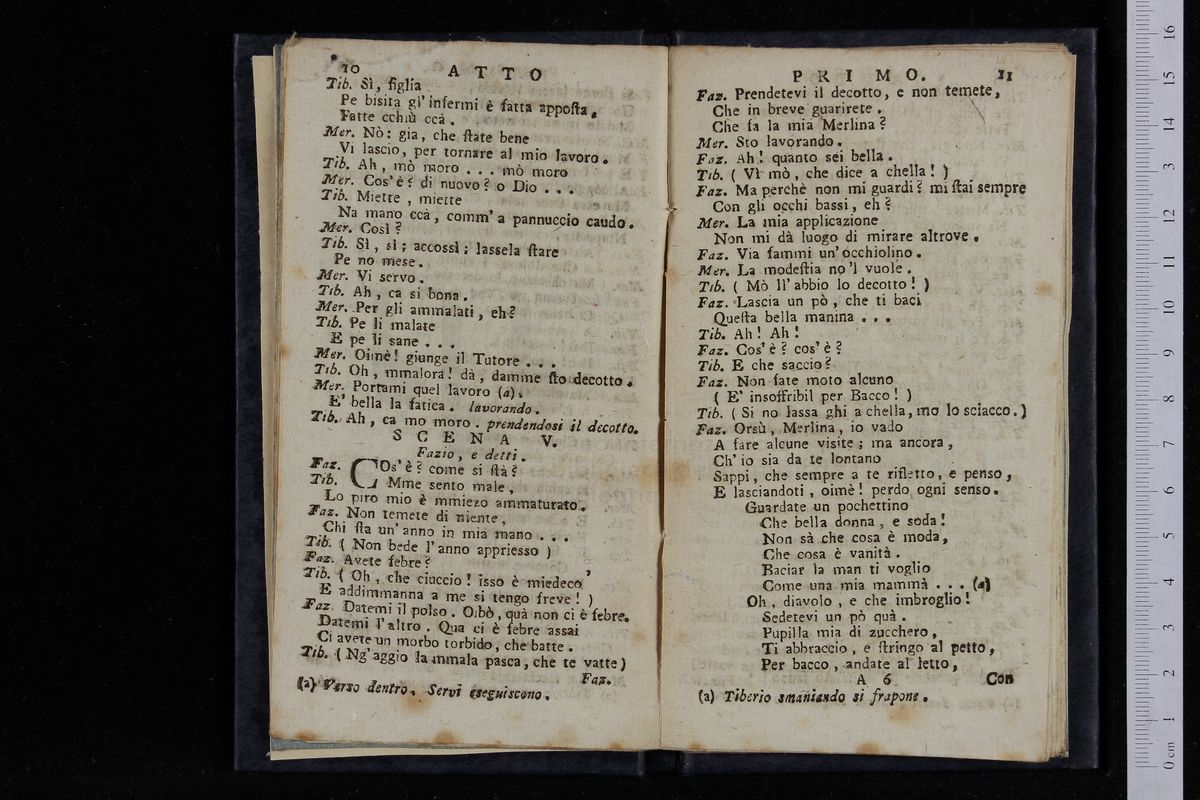 10 ATTO
Tib. Sì, figlia
Pe bisita gl'infermi è fatta apposta,
Fatte cchiù ccà.
Mer. Nò: gia, che state bene
Vi lascio, per tornare al mio lavoro.
Tib. Ah, mò moro . . . mò moro
Mer. Cos'è? di nuovo? o Dio . . .
Tib. Miette, miette
Na mano ccà, comm'a pannuccio caudo.
Mer. Così?
Tib. Sì, sì; accossì; lassela stare
Pe no mese.
Mer. Vi servo.
Tib. Ah, ca si bona.
Mer. Per gli ammalati, eh?
Tib. Pe li malate
E pe li sane . . .
Mer. Oimè! giunge il Tutore . . .
Tib. Oh, mmalora! dà, damme sto decotto.
Mer. Portami quel lavoro (a).
E' bella la fatica. lavorando.
Tib. Ah, ca mo moro. prendendosi il decotto.
SCENA V.
Fazio, e detti.
Faz. COs'è? come si stà?
Tib. Mme sento male,
Lo piro mio è mmiezo ammaturato.
Faz. Non temete di niente,
Chi sta un'anno in mia mano . . .
Tib. (Non bede l'anno appriesso)
Faz. Avete febre?
Tib. (Oh, che ciuccio! isso è miedeco,
E addimmanna a me si tengo freve!)
Faz. Datemi il polso. Oibò, quà non ci è febre.
Datemi l'altro. Qua ci è febre assai
Ci avete un morbo torbido, che batte.
Tib. (Ng'aggio la mmala pasca, che te vatte)
Faz.
(a) Verso dentro. Servi eseguiscono.
PRIMO. 11
Faz. Prendetevi il decotto, e non temete,
Che in breve guarirete.
Che fa la mia Merlina?
Mer. Sto lavorando.
Faz. Ah! quanto sei bella.
Tib. (Vì mò, che dice a chella!)
Faz. Ma perchè non mi guardi? mi stai sempre
Con gli occhi bassi, eh?
Mer. La mia applicazione
Non mi dà luogo di mirare altrove.
Faz. Via fammi un'occhiolino.
Mer. La modestia no'l vuole.
Tib. (Mò ll'abbio lo decotto!)
Faz. Lascia un pò, che ti baci
Questa bella manina . . .
Tib. Ah! Ah!
Faz. Cos'è? cos'è?
Tib. E che saccio?
Faz. Non fate moto alcuno
(E' insoffribil per Bacco!)
Tib. (Si no lassa ghi a chella, mo lo sciacco.)
Faz. Orsù, Merlina, io vado
A fare alcune visite; ma ancora,
Ch'io sia da te lontano
Sappi, che sempre a te rifletto, e penso,
E lasciandoti, oimè! perdo ogni senso.
Guardate un pochettino
Che bella donna, e soda!
Non sà che cosa è moda,
Che cosa è vanità.
Baciar la man ti voglio
Come una mia mammà . . . (a)
Oh, diavolo, e che imbroglio!
Sedetevi un pò quà.
Pupilla mia di zucchero,
Ti abbraccio, e stringo al petto,
Per bacco, andate al letto,
A 6 Con
(a) Tiberio smaniando si frapone.
0 cm 1 2 3 4 5 6 7 8 9 10 11 12 13 14 15 16